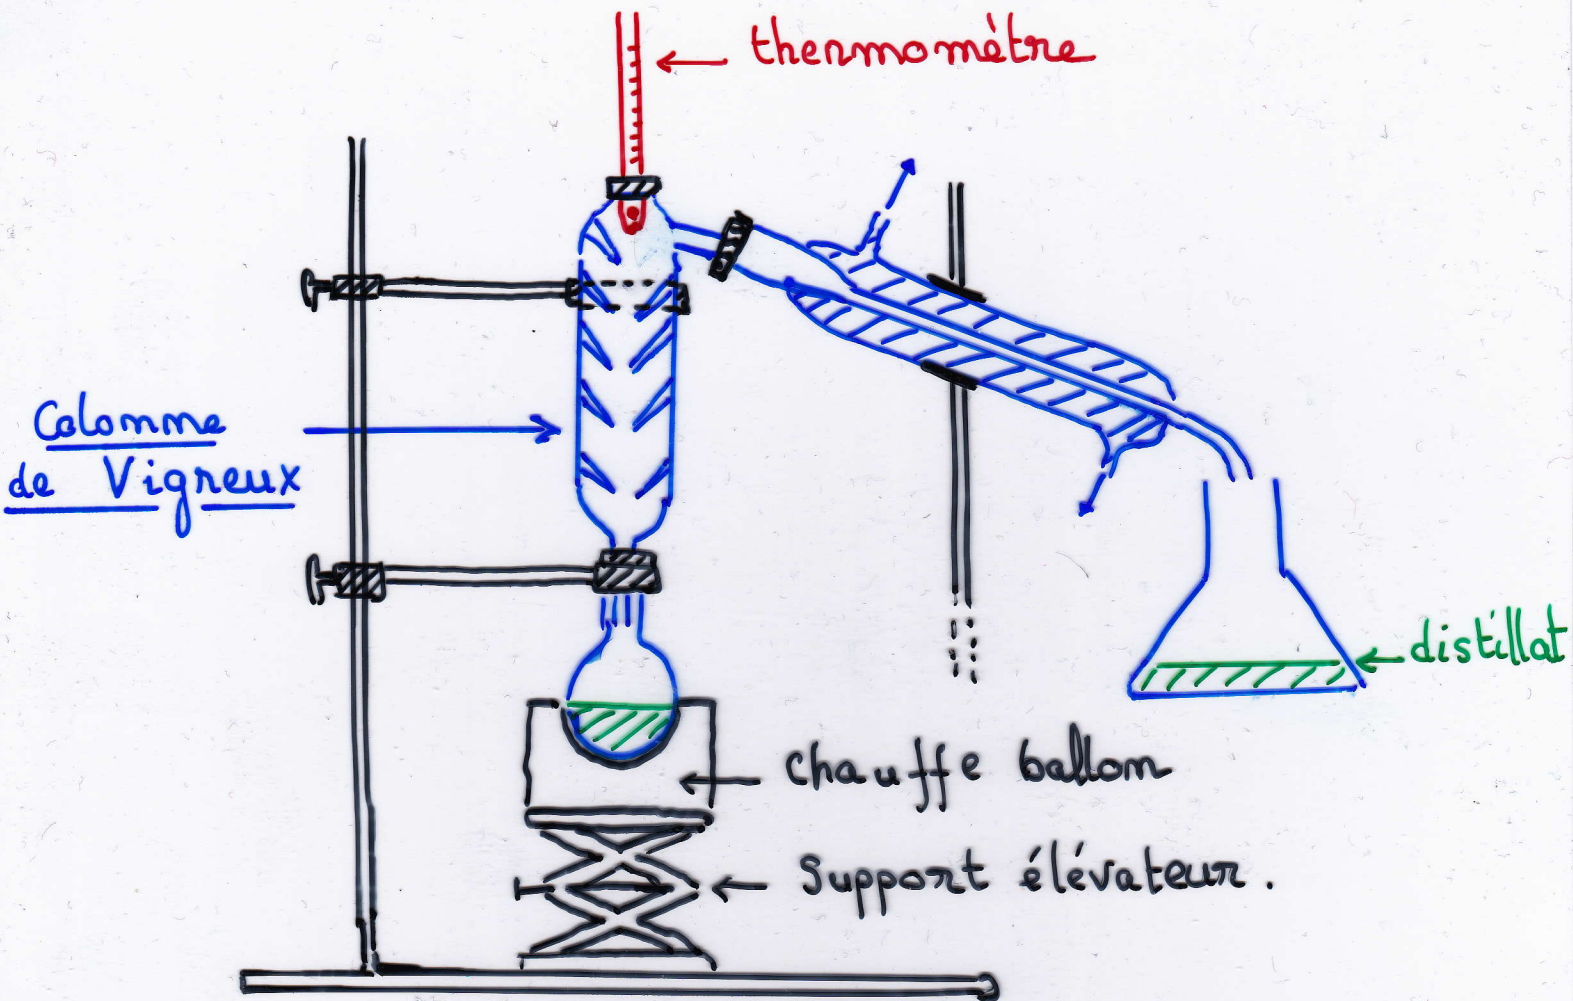 thermomètre
Colonne
de Vigreux
distillat
chauffe ballon
support élévateur.